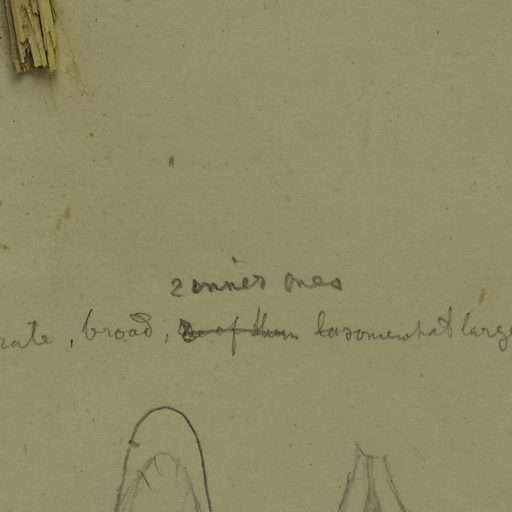 2 inner ones
rate, broad, 2 of them somewhat large